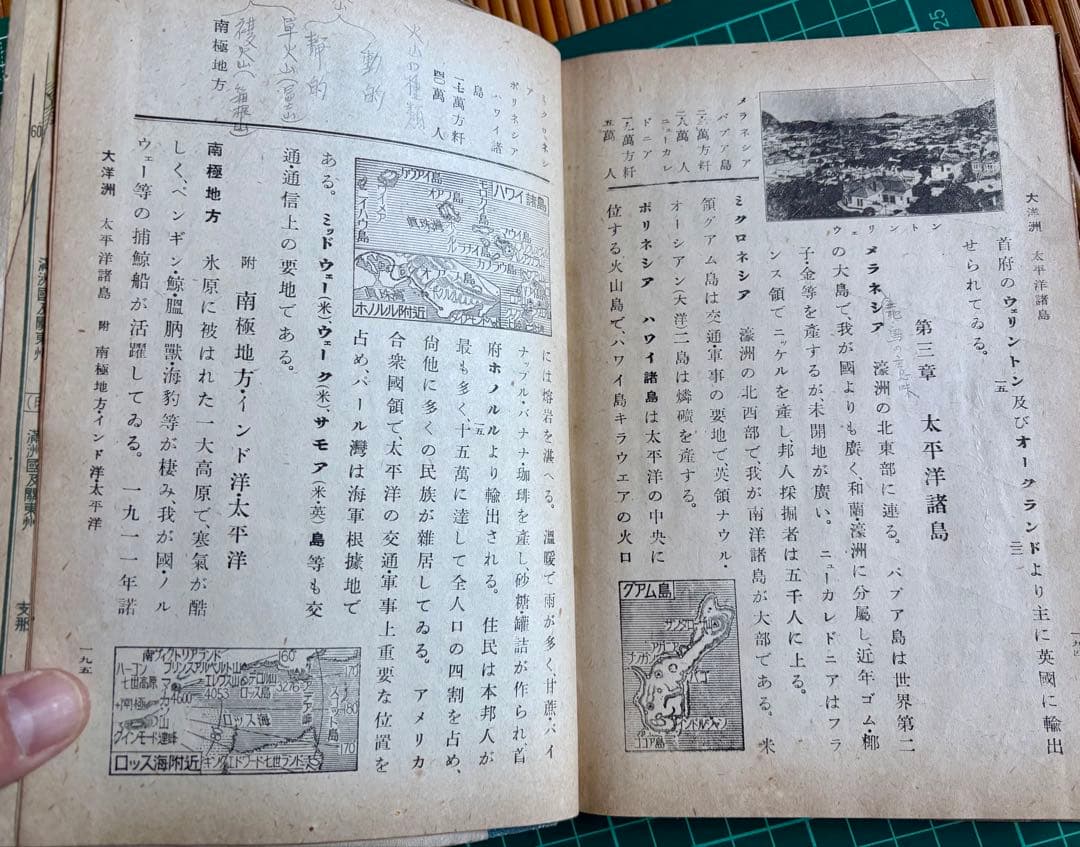 大洋洲 太平洋諸島
一九四
首府のウェリントン及びオークランドより主に英國に輸出
せられてゐる。
ウェリントン
第三章 太平洋諸島
メラネシア 濠洲の北東部に連る。パプア島は世界第二
の大島で、我が國よりも廣く、和蘭濠洲に分屬し、近年ゴム・椰
子・金等を產するが未開地が廣い。ニューカレドニアはフラ
ンス領でニッケルを產し、邦人採掘者は五千人に上る。
ミクロネシア 濠洲の北西部で、我が南洋諸島が大部である。米
領グアム島は交通・軍事の要地で英領ナウル・
オーシアン(大洋)二島は燐礦を產する。
ポリネシア ハワイ諸島は太平洋の中央に
位する火山島で、ハワイ島キラウエアの火口
メラネシア
パプア島
ニューカレ
ドニア
五萬人
グアム島
ミクロネシ
ア
ポリネシア
ハワイ諸
島
一・七萬方粁
四〇萬人
火山の種類
動的
靜的
單火山(富士山
複火山(箱根山
南極地方
ハワイ諸島
カウアイ島
オアフ島
眞珠灣
モロカイ島
マウイ島
ホノルル附近
眞珠灣
には熔岩を湛へる。溫暖で雨が多く、甘蔗・パイ
ナップル・バナナ・珈琲を產し、砂糖・罐詰が作られ、首
府ホノルルより輸出される。住民は本邦人が
最も多く、十五萬に達して全人口の四割を占め、
尙他に多くの民族が雜居してゐる。アメリカ
合衆國領で、太平洋の交通・軍事上重要な位置を
占め、パール灣は海軍根據地で
ある。ミッドウェー(米)、ウェーク(米)、サモア(米・英)島等も交
通・通信上の要地である。
附 南極地方・インド洋・太平洋
南極地方 氷原に被はれた一大高原で、寒氣が酷
しく、ペンギン・鯨・膃肭獸・海豹等が棲み、我が國・ノル
ウェー等の捕鯨船が活躍してゐる。一九一一年諾
大洋洲 太平洋諸島 附 南極地方・インド洋太平洋
一九五
南ヴィクトリアランド
4053
3276
160
170
180
170
ロッス島
ロッス海
ロッス海附近
キングエドワード七世ランド
60
滿洲國及關東州
滿洲國及關東州
支那
25